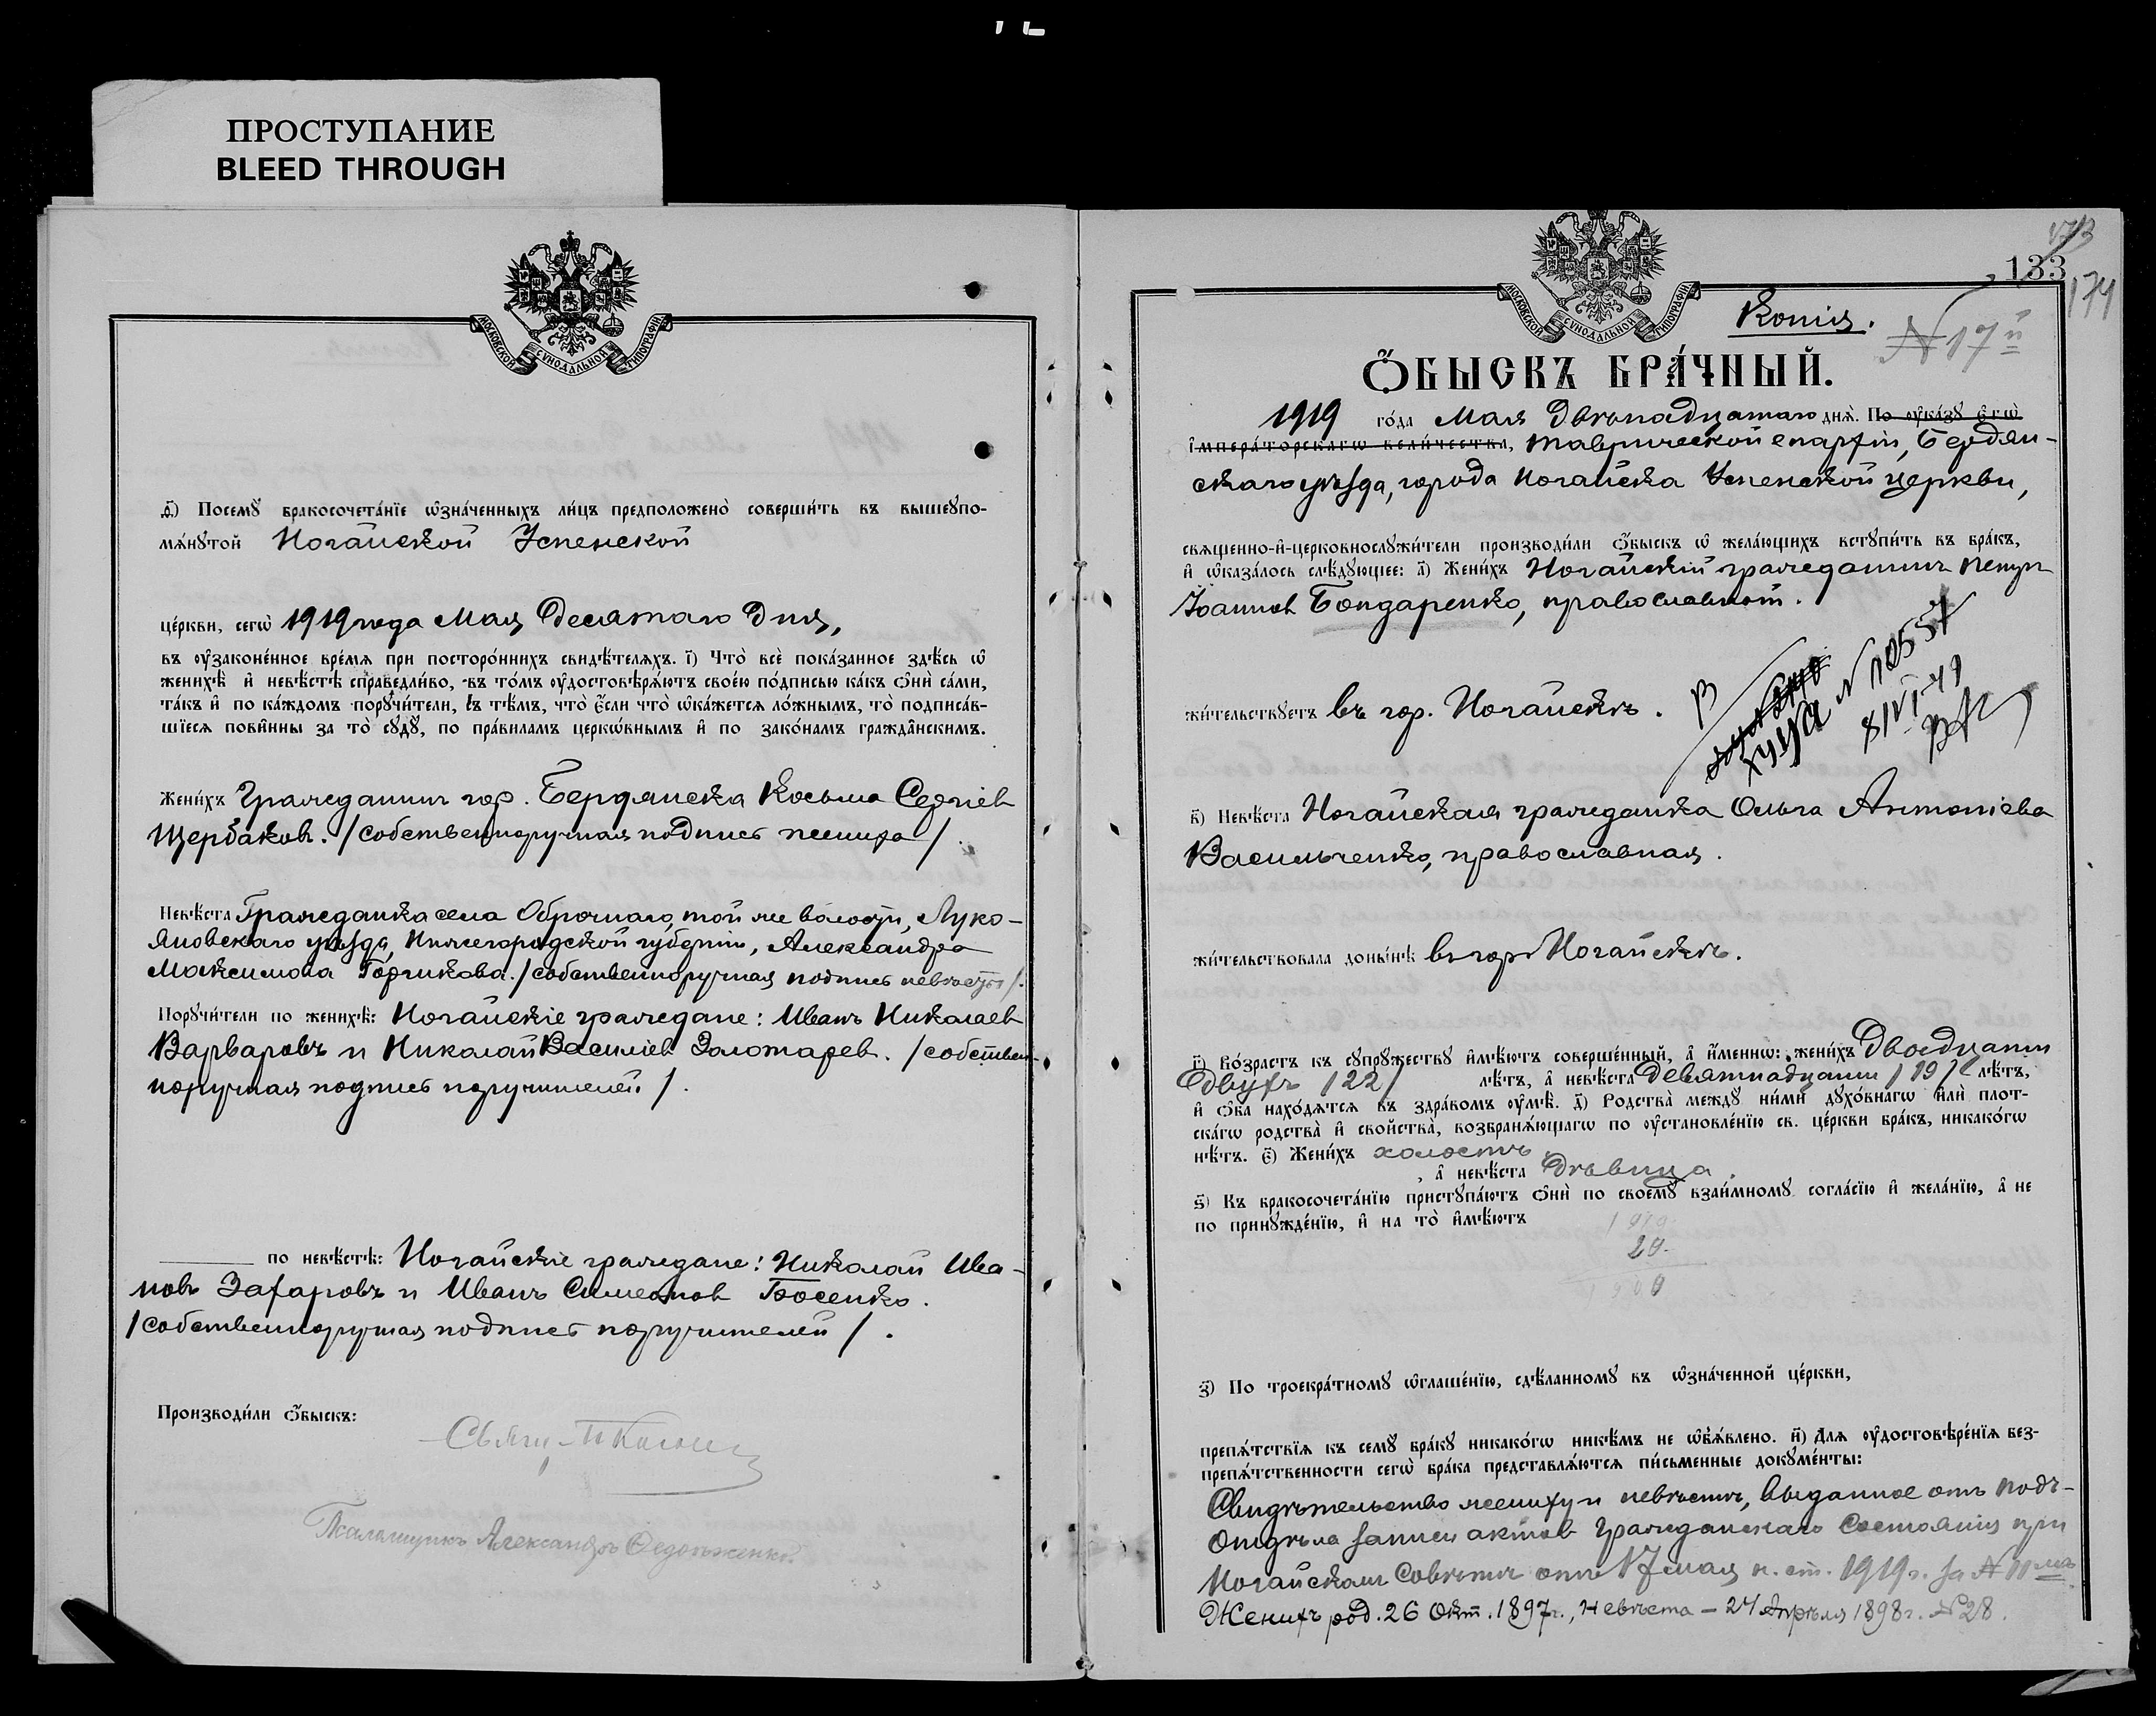 ПРОСТУПАНИЕ
BLEED THROUGH
МОСКОВСКОЙ СѴНОДАЛЬНОЙ ТИПОГРАФІИ
ѳ҃) Посемꙋ бракосочета́нїе ѡ҆зна́ченныхъ ли́цъ предположено̀ соверши́ть въ вышеꙋпо-
мѧ́нꙋтой Ногайской Успенской
це́ркви, сегѡ̀ 1919 года Мая Десятаго Дня,
въ ᲂу҆законе́нное вре́мѧ при посторо́ннихъ свидѣ́телѧхъ. і҃) Что̀ всѐ пока́занное здѣ́сь ѡ҆
женихѣ̀ и҆ невѣ́стѣ справедли́во, въ то́мъ ᲂу҆достовѣрѧ́ютъ свое́ю по́дписью ка́къ ѻ҆нѝ са́ми,
та́къ и҆ по ка́ждомъ порꙋчи́тели, съ тѣ́мъ, что̀ є҆́сли что̀ ѡ҆ка́жется ло́жнымъ, то̀ подписа́в-
шїесѧ пови́нны за то̀ сꙋдꙋ̀, по пра́виламъ церко́внымъ и҆ по зако́намъ гражда̂нскимъ.
Жени́хъ Гражданинъ гор. Бердянска Косьма Сергіев
Щербаков. /собственноручная подпись жениха/.
Невѣ́ста Гражданка села Оброчнаго, той же волости, Луко-
яновскаго уѣзда, Нижегородской губерніи, Александра
Максимова Горчикова. /собственноручная подпись невѣсты/.
Порꙋчи́тели по женихѣ̀: Ногайскіе граждане: Иванъ Николаев
Варваровъ и Николай Василіев Золотарев. /собствен-
норучная подпись поручителей/.
по невѣ́стѣ: Ногайскіе граждане: Николай Ива-
новъ Захаровъ и Иванъ Симеонов Босенко.
/собственноручная подпись поручителей/.
Производи́ли ѻ҆́быскъ:
Свящ.
Псаломщикъ Александръ
173
133
174
МОСКОВСКОЙ СѴНОДАЛЬНОЙ ТИПОГРАФІИ
Копія.
N 17й
Ѻ҆́БЫСКЪ БРА́ЧНЫЙ.
1919 го́да Мая Двѣнадцатаго днѧ̀. По ᲂу҆ка́зꙋ є҆гѡ̀
і҆мпера́торскагѡ вели́чества, Таврической епархіи, Бердян-
скаго уѣзда, города Ногайска Успенской церкви,
свѧще́нно-и҆-церковнослꙋжи́тели производи́ли ѻ҆́быскъ ѡ҆ жела́ющихъ встꙋпи́ть въ бра́къ,
и҆ ѡ҆каза́лось слѣ́дꙋющее: а҃) Жени́хъ Ногайскій гражданинъ Петръ
Іоаннов Бондаренко, православный.
жи́тельствꙋетъ въ гор. Ногайскѣ.
В
ЗАГСА N 10557
8/VI-49
в҃) Невѣ́ста Ногайская гражданка Ольга Антоніева
Васильченко, православная.
жи́тельствовала доны́нѣ въ гор Ногайскѣ.
г҃) Во́зрастъ къ сꙋпрꙋ́жествꙋ и҆мѣ́ютъ соверше́нный, а҆ и҆́меннѡ: жени́хъ Двадцати
Двухъ /22/ лѣ́тъ, а҆ невѣ́ста Девятнадцати /19/ лѣ́тъ,
и҆ ѻ҆́ба нахо́дѧтсѧ въ здра́вомъ ᲂу҆мѣ̀. д҃) Родства̀ междꙋ̀ ни́ми дꙋхо́внагѡ и҆лѝ плот-
ска́гѡ родства̀ и҆ свойства̀, возбранѧ́ющагѡ по ᲂу҆становле́нїю св. це́ркви бра́къ, никако́гѡ
нѣ́тъ. є҃) Жени́хъ холостъ
, а҆ невѣ́ста Дѣвица.
ѕ҃) Къ бракосочета́нїю пристꙋпа́ютъ ѻ҆нѝ по своемꙋ̀ взаи́мномꙋ согла́сїю и҆ жела́нїю, а҆ не
по принꙋжде́нїю, и҆ на то̀ и҆мѣ́ютъ
1919
з҃) По троекра́тномꙋ ѡ҆глаше́нїю, сдѣ́ланномꙋ въ ѡ҆зна́ченной це́ркви,
препѧ́тствїѧ къ семꙋ̀ бра́кꙋ никако́гѡ никѣ́мъ не ѡ҆б̾ѧ́влено. и҃) Длѧ ᲂу҆достовѣре́нїѧ без-
препѧ́тственности сегѡ̀ бра́ка представлѧ́ютсѧ пи́сьменные докꙋме́нты:
Свидѣтельство жениху и невѣстѣ, выданное отъ Подъ-
отдѣла записи актов Гражданскаго Состоянія при
Ногайском Совѣтѣ отъ 17 мая н. ст. 1919 г. за N 11мъ
Женихъ род. 26 Окт. 1897 г., Невѣста – 24 Апрѣля 1898 г. N 28.